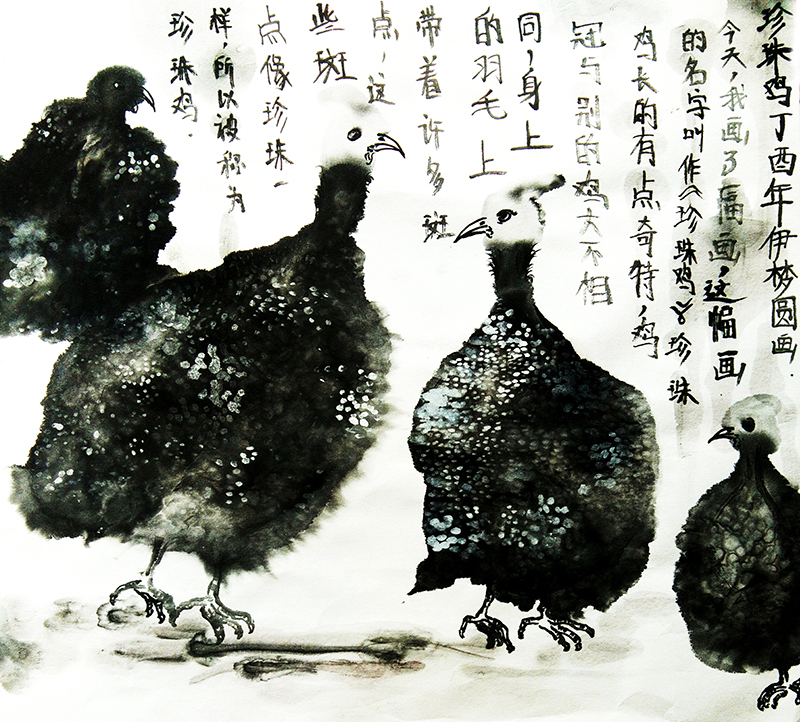 珍珠鸡丁酉年伊梦圆画.
今天,我画了幅画,这幅画
的名字叫作《珍珠鸡》珍珠
鸡长的有点奇特,鸡
冠与别的鸡大不相
同,身上
的羽毛上
带着许多斑
点,这
些斑
点像珍珠一
样,所以被称为
珍珠鸡.